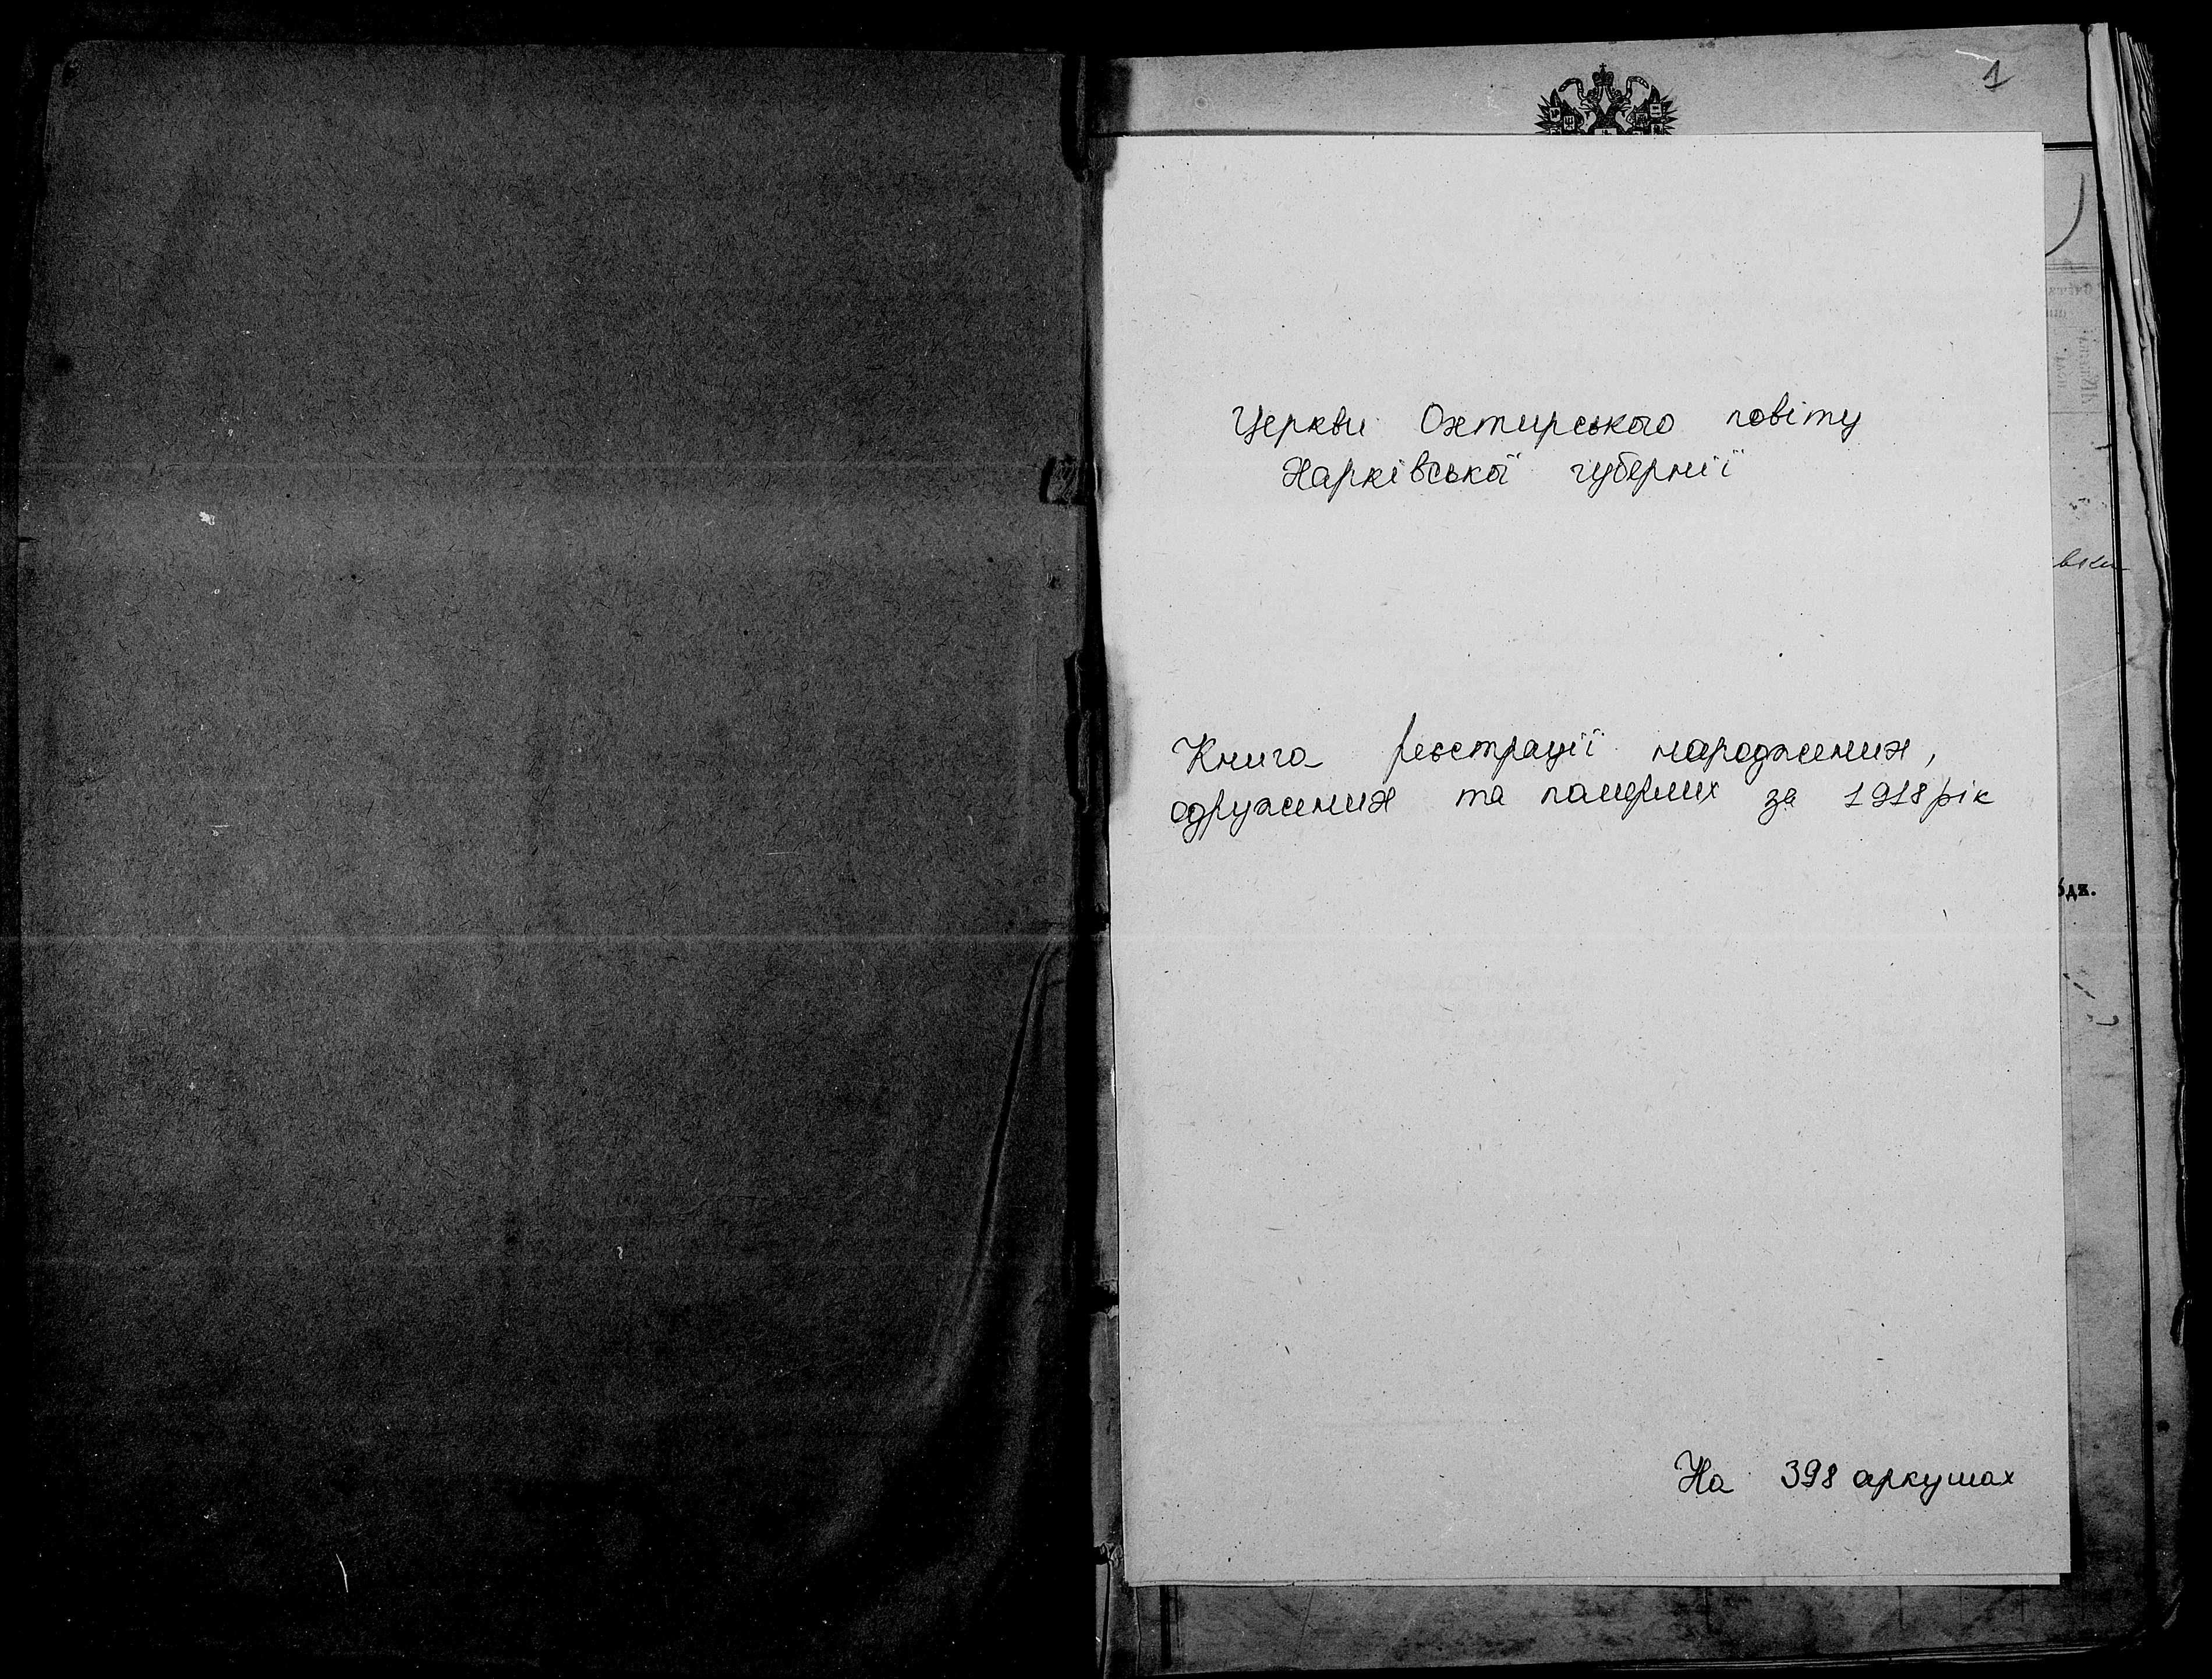 1
Церкви Охтирського повіту
Харківської губернії
Книга реєстрації народжених,
одружених та померлих за 1918 рік
На 398 аркушах